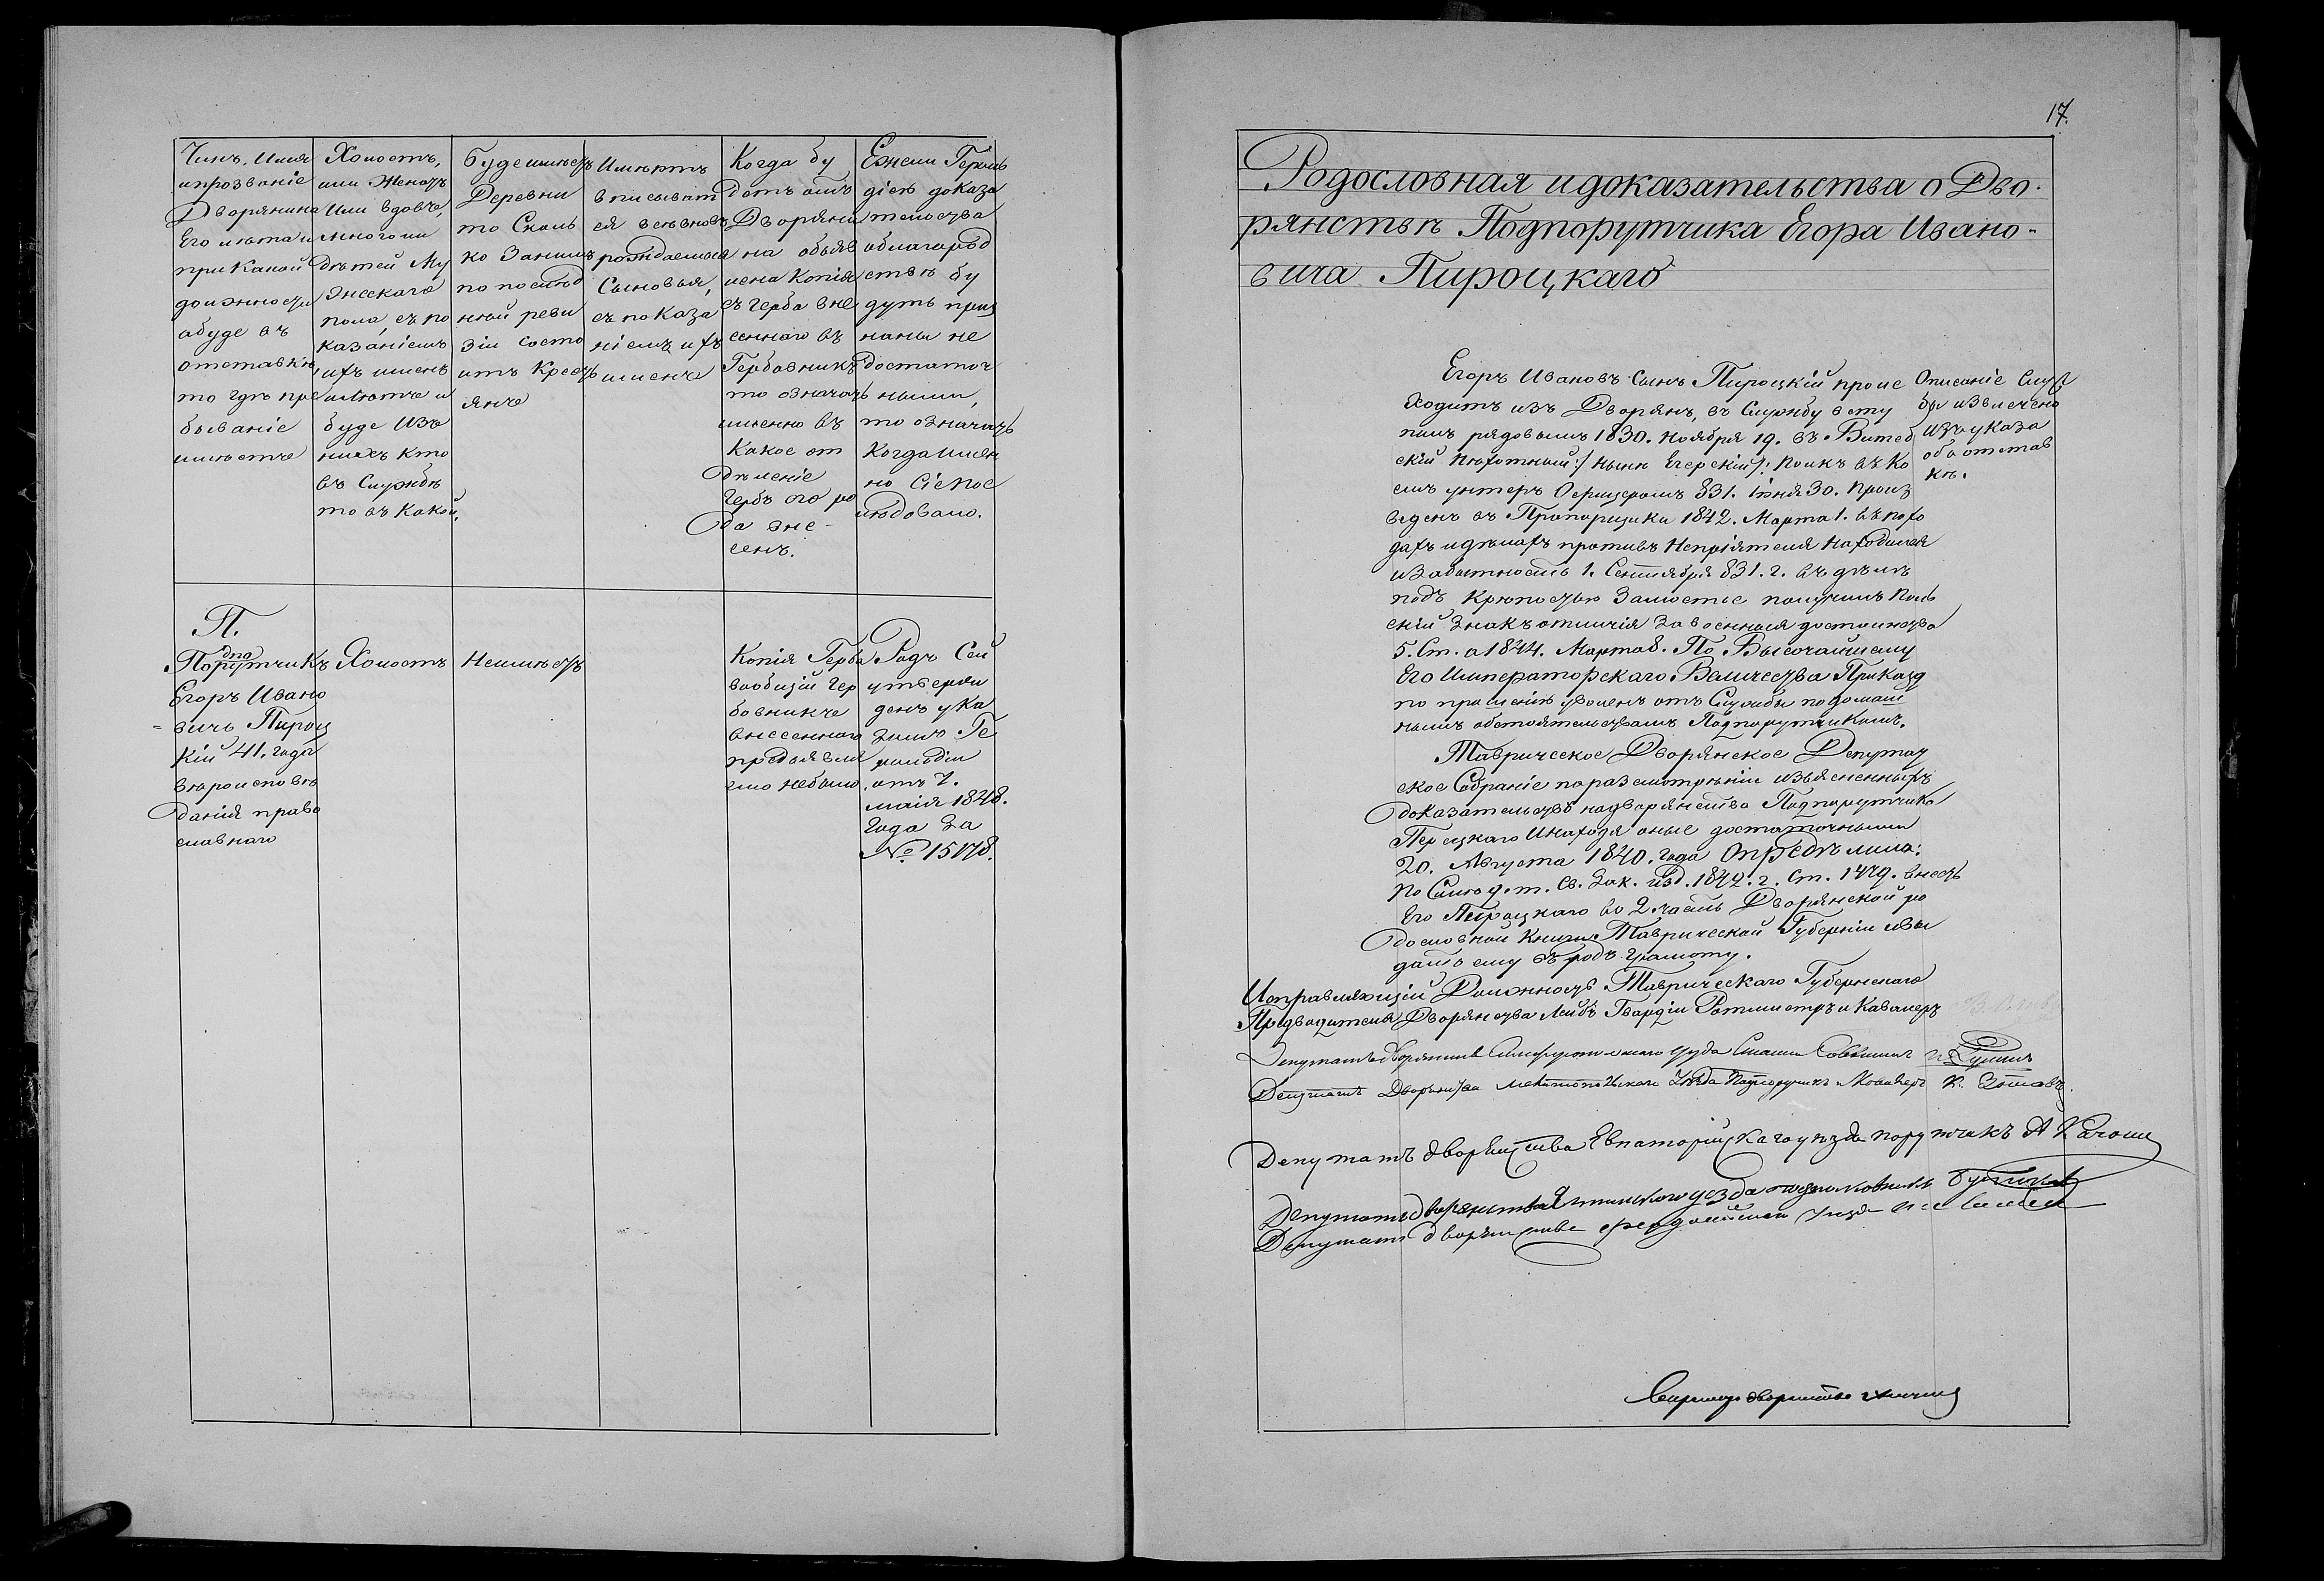 Чинъ, имя
ипрозваніе
Дворянина
Его лѣта и
при какой
должности
абуде въ
отставкѣ,
то гдѣ пре
бываніе
имѣетъ
Холостъ,
или Женатъ
Или вдовъ,
имного ли
дѣтей Му
жескаго
пола, съ по
казаніемъ
ихъ именъ
илѣтъ и
буде изъ
нихъ кто
въ Службѣ
то въ какой.
Буде имѣетъ
Деревни
то Сколь
ко Занимъ
по послѣд
ней реви
зіи состо
итъ Кресть
янъ
Имѣютъ
вписыват
ся всѣ вновь
рождаемыя
Сыновья,
съ показа
ніемъ ихъ
именъ
Когда бу
детъ отъ
Дворяни
на объяв
лена Копія
съ герба вне
сеннаго въ
Гербовникъ
то означать
именно въ
какое от
дѣленіе
Гербъ его ро
да вне-
сенъ.
Ежели Героль
діею доказа
тельства
облагород
ствѣ бу
дутъ приз
наны не
достаточ
ными,
то означать
Когда имен
но Сіе пос
лѣдовало.
П.
дпо
Порутчикъ
Егоръ Ивано
вичъ Пироц
кій 41. года
вѣроисповѣ
данія право
славнаго
Холостъ
Неимѣетъ
Копія Герба
вообщій Гер
бовникъ
внесеннаго
предъявле
но небыло.
Родъ Сей
утверж
денъ ука
зомъ Ге
рольдіи
отъ 7.
маія 1848.
Года За
№ 15178.
17.
Родословная идоказательства о Дво-
рянствѣ Подпорутчика Егора Ивано-
вича Пироцкаго
Егоръ Ивановъ Сынъ Пироцкій проис
ходитъ изъ Дворянъ, въ Службу всту
пилъ рядовымъ 1830. Ноября 19. въ Витеб
скій пѣхотный :/ Нынѣ Егерскій /: Полкъ въ ко
емъ унтеръ Офицеромъ 831. Іюня 30. Произ
веденъ въ Прапорщики 1842. Марта 1. въ похо
дахъ и дѣлахъ противъ Непріятеля Находился
изабытность 1. Сентября 831. г. въ дѣлѣ
подъ крѣпостью Замостье получилъ Поль
скій Знакъ отличія За военныя достоинства
5. Ст. а 1844. Марта 8. По Высочайшему
Его Императорскаго Величества Приказу
по прошенію уволенъ отъ Службы по домаш
нымъ обстоятельствамъ Подпорутчикомъ.
Описаніе Служ
бы извлечено
изъ указа
объ отстав
кѣ.
Таврическое Дворянское Депутат
ское Собраніе поразсмотрѣніи изъясненныхъ
доказательствъ надворянство Подпорутчика
Пероцкаго Инаходя оные достаточными
20. Августа 1840. года Опредѣлила:
по Силѣ 9. т. Св. Зак. изд. 1842. г. Ст. 1479. внесть
Его Пироцкаго во 2 часть Дворянской ро
дословной Книги Таврической Губерніи ивы
дать ему въ родъ Грамоту.
Исправляющій Должность Таврическаго Губернскаго
Предводителя Дворянства Лейбъ Гвардіи Ротмистръ и Кавалеръ
Депутатъ дворянства Симферопольскаго уѣзда
Депутатъ Дворянства Мелитопольскаго Уѣзда Подпоручикъ
Депутатъ дворянства Евпаторійскаго уѣзда поручикъ А
Депутатъ дворянства Ялтинскаго уезда подполковникъ
Депутатъ дворянства Феодосійскаго Уезда
Секретарь дворянства